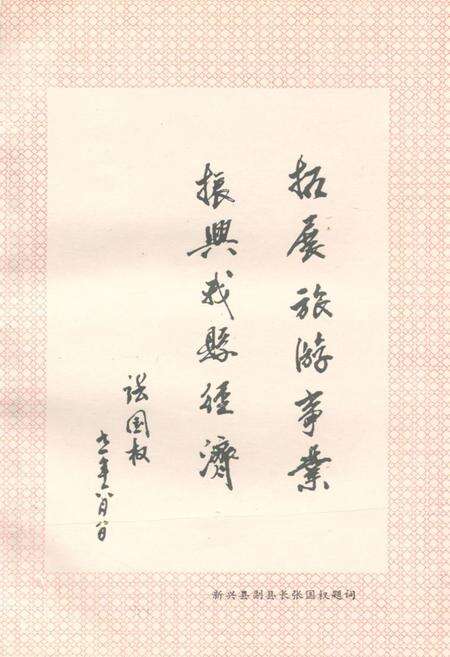 拓展旅游事業
振興我縣經濟
张国权
九一年八月八日
新兴县副县长张国权题词